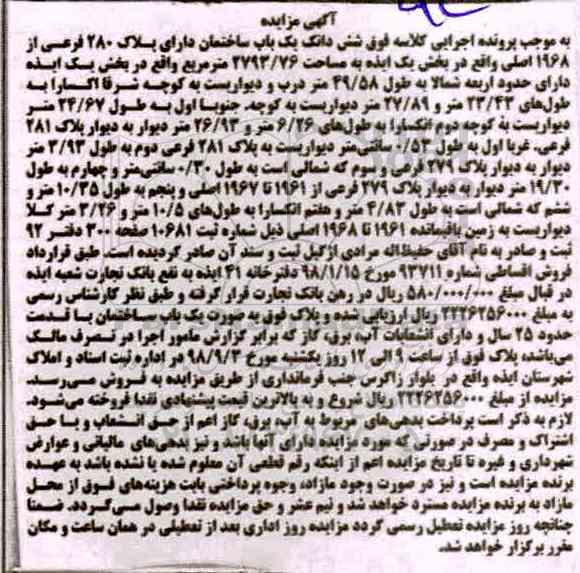 آگهی مزایده
به موجب پرونده اجرایی کلاسه فوق شش دانک یک باب ساختمان دارای پلاک ۲۸۰ فرعی از
۱۹۶۸ اصلی واقع در بخش یک ایذه به مساحت ۲۷۹۳/۷۶ مترمربع واقع در بخش یک ایذه
دارای حدود اربعه شمالا به طول ۴۹/۵۸ متر درب و دیواریست به کوچه شرقا اکسارا به
طول‌های ۲۳/۴۳ متر و ۲۷/۸۹ متر دیواریست به کوچه. جنوبا اول به طول ۲۴/۶۷ متر
دیواریست به کوچه دوم انکسارا به طول‌های ۶/۲۶ متر و ۲۶/۹۳ متر دیوار به دیوار پلاک ۲۸۱
فرعی. غربا اول به طول ۰/۵۳ سانتی‌متر دیواریست به پلاک ۲۸۱ فرعی دوم به طول ۳/۹۳ متر
دیوار به دیوار پلاک ۲۷۹ فرعی و سوم که شمالی است به طول ۰/۳۰ سانتی‌متر و چهارم به طول
۱۹/۳۰ متر دیوار به دیوار پلاک ۲۷۹ فرعی از ۱۹۶۱ تا ۱۹۶۷ اصلی و پنجم به طول ۱۰/۳۵ متر و
ششم که شمالی است به طول ۴/۸۳ متر و هفتم انکسارا به طول‌های ۱۰/۵ متر و ۳/۲۶ متر کلا
دیواریست به زمین باقیمانده ۱۹۶۱ تا ۱۹۶۸ اصلی ذیل شماره ثبت ۱۰۶۸۱ صفحه ۳۰۰ دفتر ۹۲
ثبت و صادر به نام آقای حفیظ‌اله مرادی ازگیل ثبت و سند آن صادر گردیده است. طبق قرارداد
فروش اقساطی شماره ۹۳۷۱۱ مورخ ۹۸/۱/۱۵ دفترخانه ۴۱ ایذه به نفع بانک تجارت شعبه ایذه
در قبال مبلغ ۵۸۰/۰۰۰/۰۰۰ ریال در رهن بانک تجارت قرار گرفته و طبق نظر کارشناس رسمی
به مبلغ ۲۲۲۶۲۵۶۰۰۰ ریال ارزیابی شده و پلاک فوق به صورت یک باب ساختمان با قدمت
حدود ۲۵ سال و دارای انشعابات آب، برق، گاز که برابر گزارش مامور اجرا در تصرف مالک
می‌باشد، پلاک فوق از ساعت ۹ الی ۱۲ روز یکشنبه مورخ ۹۸/۹/۳ در اداره ثبت اسناد و املاک
شهرستان ایذه واقع در بلوار زاگرس جنب فرمانداری از طریق مزایده به فروش می‌رسد.
مزایده از مبلغ ۲۲۲۶۲۵۶۰۰۰ ریال شروع و به بالاترین قیمت پیشنهادی نقدا فروخته می‌شود.
لازم به ذکر است پرداخت بدهی‌های مربوط به آب، برق، گاز اعم از حق انشعاب و یا حق
اشتراک و مصرف در صورتی که مورد مزایده دارای آنها باشد و نیز بدهی‌های مالیاتی و عوارض
شهرداری و غیره تا تاریخ مزایده اعم از اینکه رقم قطعی آن معلوم شده یا نشده باشد به عهده
برنده مزایده است و نیز در صورت وجود مازاد، وجوه پرداختی بابت هزینه‌های فوق از محل
مازاد به برنده مزایده مسترد خواهد شد و نیم عشر و حق مزایده نقدا وصول می‌گردد. ضمنا
چنانچه روز مزایده تعطیل رسمی گردد مزایده روز اداری بعد از تعطیلی در همان ساعت و مکان
مقرر برگزار خواهد شد.